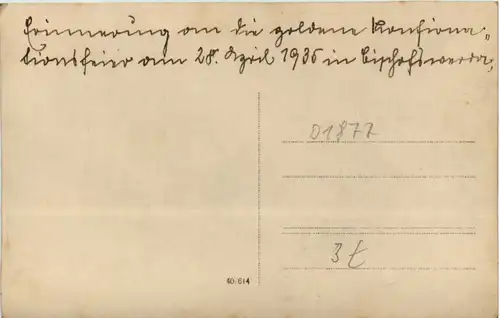 Erinnerung an die goldene Konfirma-
tionsfeier am 28. April 1935 in Bischofswerda,
01877
3 £
40:614